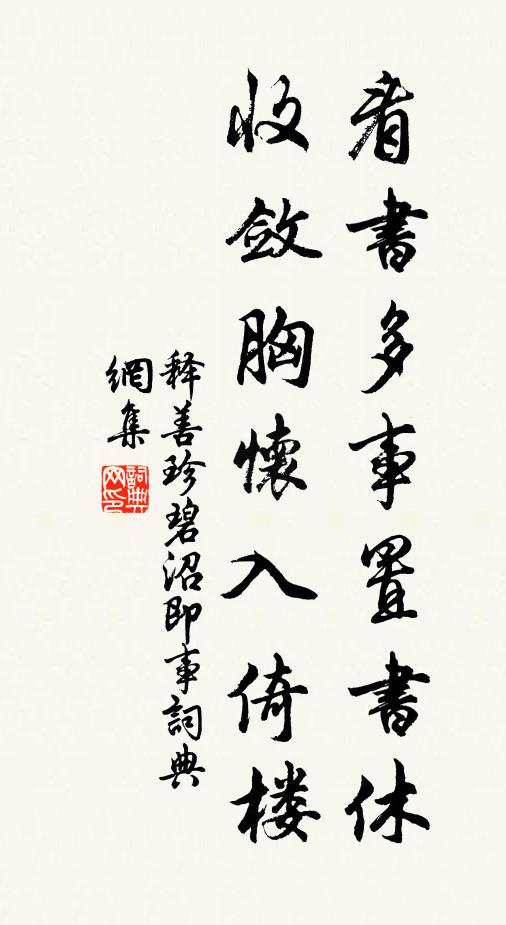 看書多事置書休
收斂胸懷入倚楼
释善珍碧沼即事詞典
網集
詞典
网印